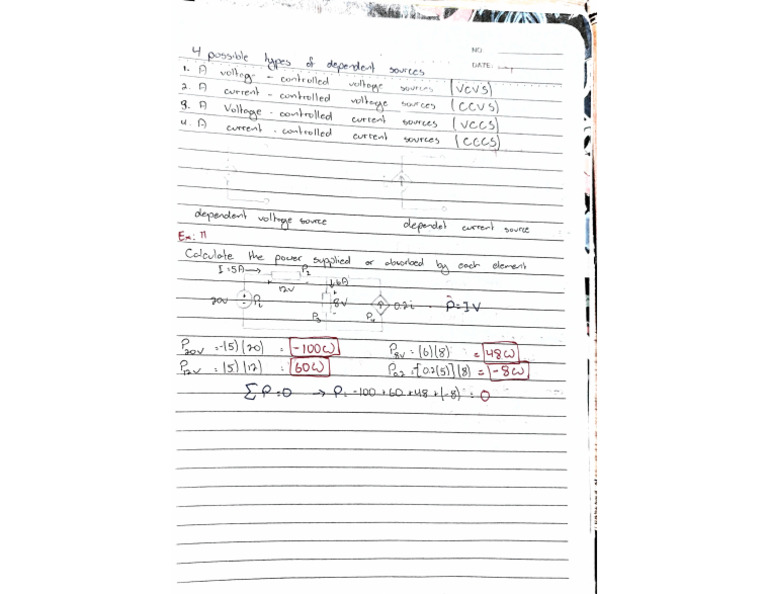 NO.
DATE:
4 possible types of dependent sources
1. A voltage - controlled voltage sources (VCVS)
2. A current - controlled voltage sources (CCVS)
3. A Voltage - controlled current sources (VCCS)
4. A current - controlled current sources (CCCS)
dependent voltage source
dependet current source
Ex: 11
Calculate the power supplied or absorbed by each element
I=5A→ P2 ↓6A
+ 12v -
20v P1 + 8V 0.2i P=IV
P3 P4
P20V = -(5)(20) = -100W P8V = (6)(8) = 48W
P12V = (5)(12) = 60W P0.2 = -[0.2(5)](8) = -8W
ΣP=0 → P= -100+60+48+(-8) = 0